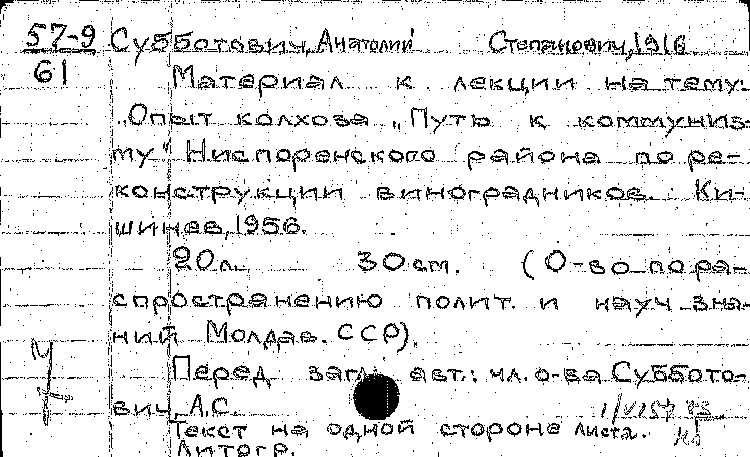 57-9 Субботович, Анатолий Степанович, 1916
61 Материал к лекции на тему:
„Опыт колхоза „Путь к коммуниз-
му" Ниспоренского района по ре-
конструкции виноградников. Ки-
шинев, 1956.
20 л. 30 см. (О-во по ра-
спространению полит. и науч зна-
ний Молдав. ССР).
Перед загл. авт.: чл. о-ва Суббото-
вич, А.С.
Текст на одной стороне листа.
Литогр.